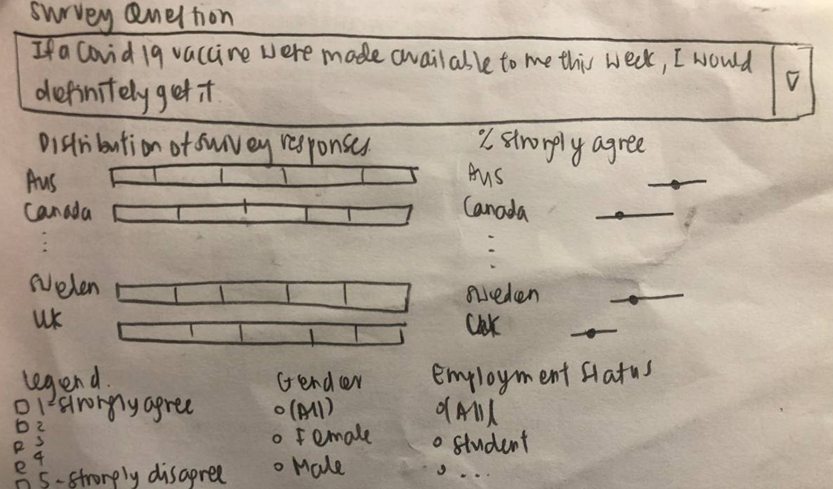 Survey Question
If a Covid 19 vaccine were made available to me this week, I would
definitely get it
Distribution of survey responses
Aus
Canada
Sweden
UK
% strongly agree
Aus
Canada
Sweden
UK
Legend.
1-strongly agree
2
3
4
5-strongly disagree
Gender
(All)
Female
Male
Employment Status
(All)
Student
...